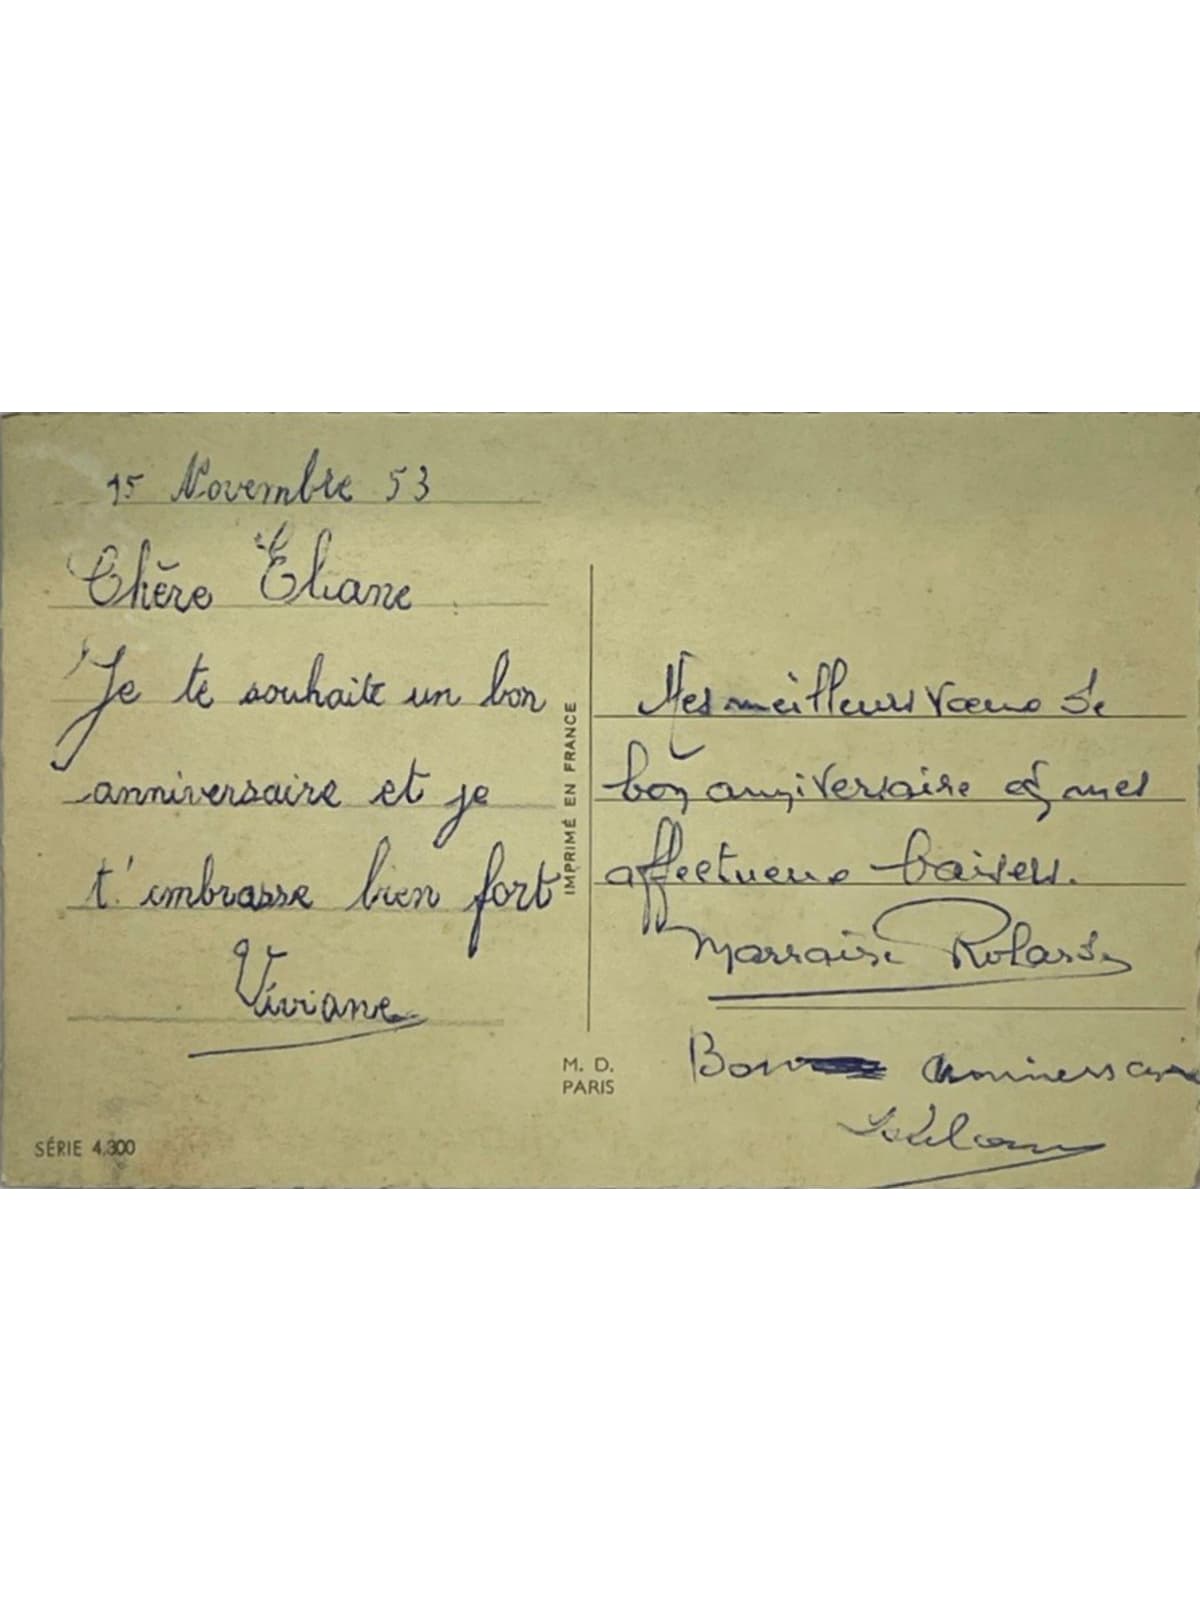 15 Novembre 53
Chère Eliane
Je te souhaite un bon
anniversaire et je
t'embrasse bien fort
Viviane
SÉRIE 4.300
IMPRIMÉ EN FRANCE
M. D.
PARIS
Mes meilleurs vœux de
bon anniversaire et mes
affectueux baisers.
Marraine Rolande
Bon anniversaire